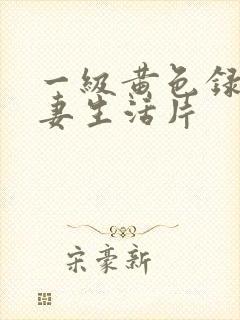 一级黄色录
妻生活片
宋豪新